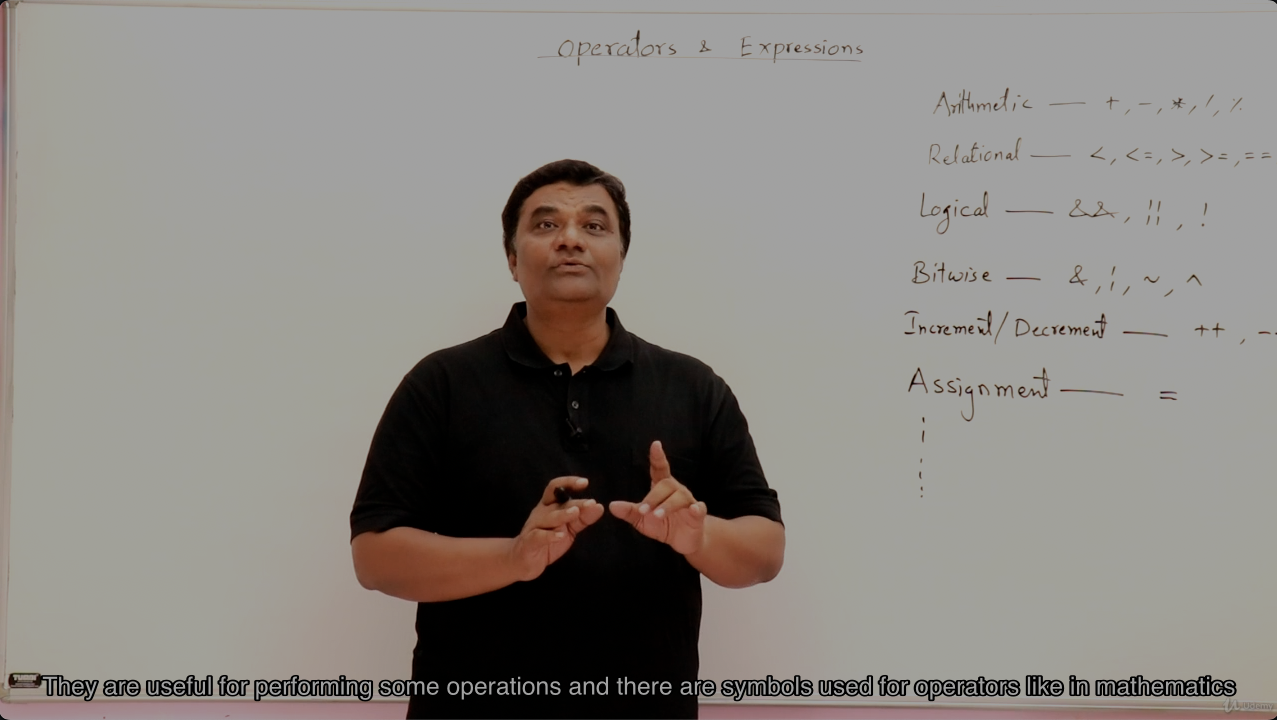 Operators & Expressions
Arithmetic — +, -, *, /, %
Relational — <, <=, >, >=, ==
Logical — &&, ||, !
Bitwise — &, |, ~, ^
Increment/Decrement — ++, --
Assignment — =
They are useful for performing some operations and there are symbols used for operators like in mathematics
Udemy